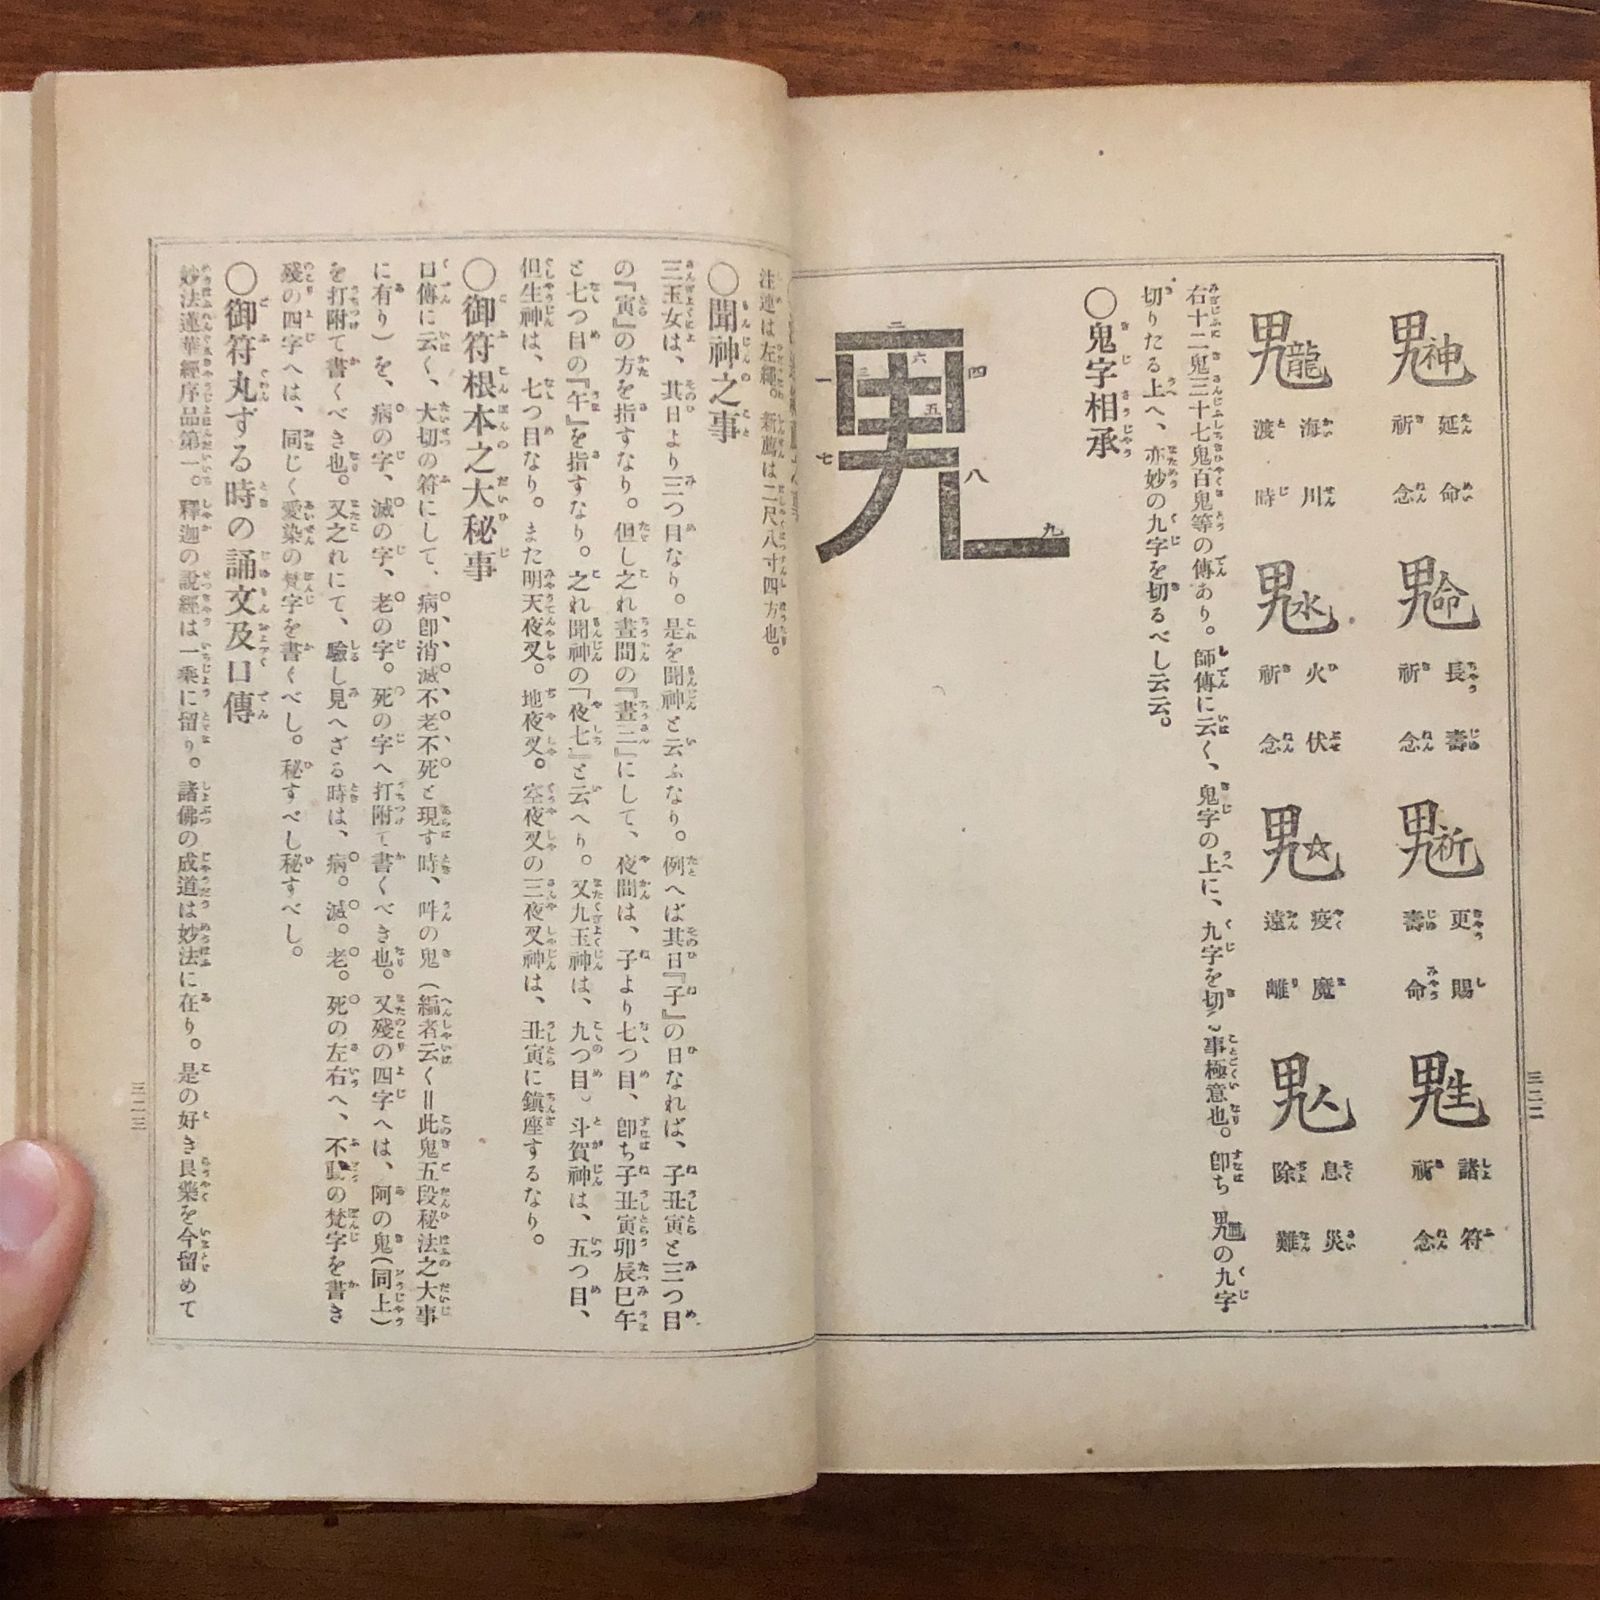 神
延命
祈念
命
長壽
祈念
祈
更賜
壽命
生
諸符
祈念
龍
海川
渡時
水
火伏
祈念
☆
疫魔
遠離
人
息災
除難
右十二鬼三十七鬼百鬼等の傳あり。師傳に云く、鬼字の上に、九字を切る事極意也。卽ち鬼の九字
切りたる上へ、亦妙の九字を切るべし云云。
○鬼字相承
一
二
三
四
五
六
七
八
九
三二二
注連は左繩。新薦は二尺八寸四方也。
○聞神之事
三玉女は、其日より三つ目なり。是を聞神と云ふなり。例へば其日『子』の日なれば、子丑寅と三つ目
の『寅』の方を指すなり。但し之れ晝間の『晝三』にして、夜間は、子より七つ目、卽ち子丑寅卯辰巳午
と七つ目の『午』を指すなり。之れ聞神の『夜七』と云へり。又九玉神は、九つ目。斗賀神は、五つ目、
但生神は、七つ目なり。また明天夜叉。地夜叉。空夜叉の三夜叉神は、丑寅に鎭座するなり。
○御符根本之大秘事
口傳に云く、大切の符にして、病卽消滅不老不死と現す時、吽の鬼(編者云く＝此鬼五段秘法之大事
に有り)を、病の字、滅の字、老の字。死の字へ打附て書くべき也。又殘の四字へは、阿の鬼(同上)
を打附て書くべき也。又之れにて、驗し見へざる時は、病。滅。老。死の左右へ、不動の梵字を書き
殘の四字へは、同じく愛染の梵字を書くべし。秘すべし秘すべし。
○御符丸ずる時の誦文及口傳
妙法蓮華經序品第一。釋迦の說經は一乘に留り。諸佛の成道は妙法に在り。是の好き良藥を今留めて
三二三